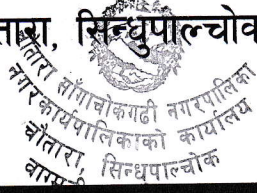 तारा, सिन्धुपाल्चोक
चौतारा साँगाचोकगढी नगरपालिका
नगर कार्यपालिकाको कार्यालय
चौतारा, सिन्धुपाल्चोक